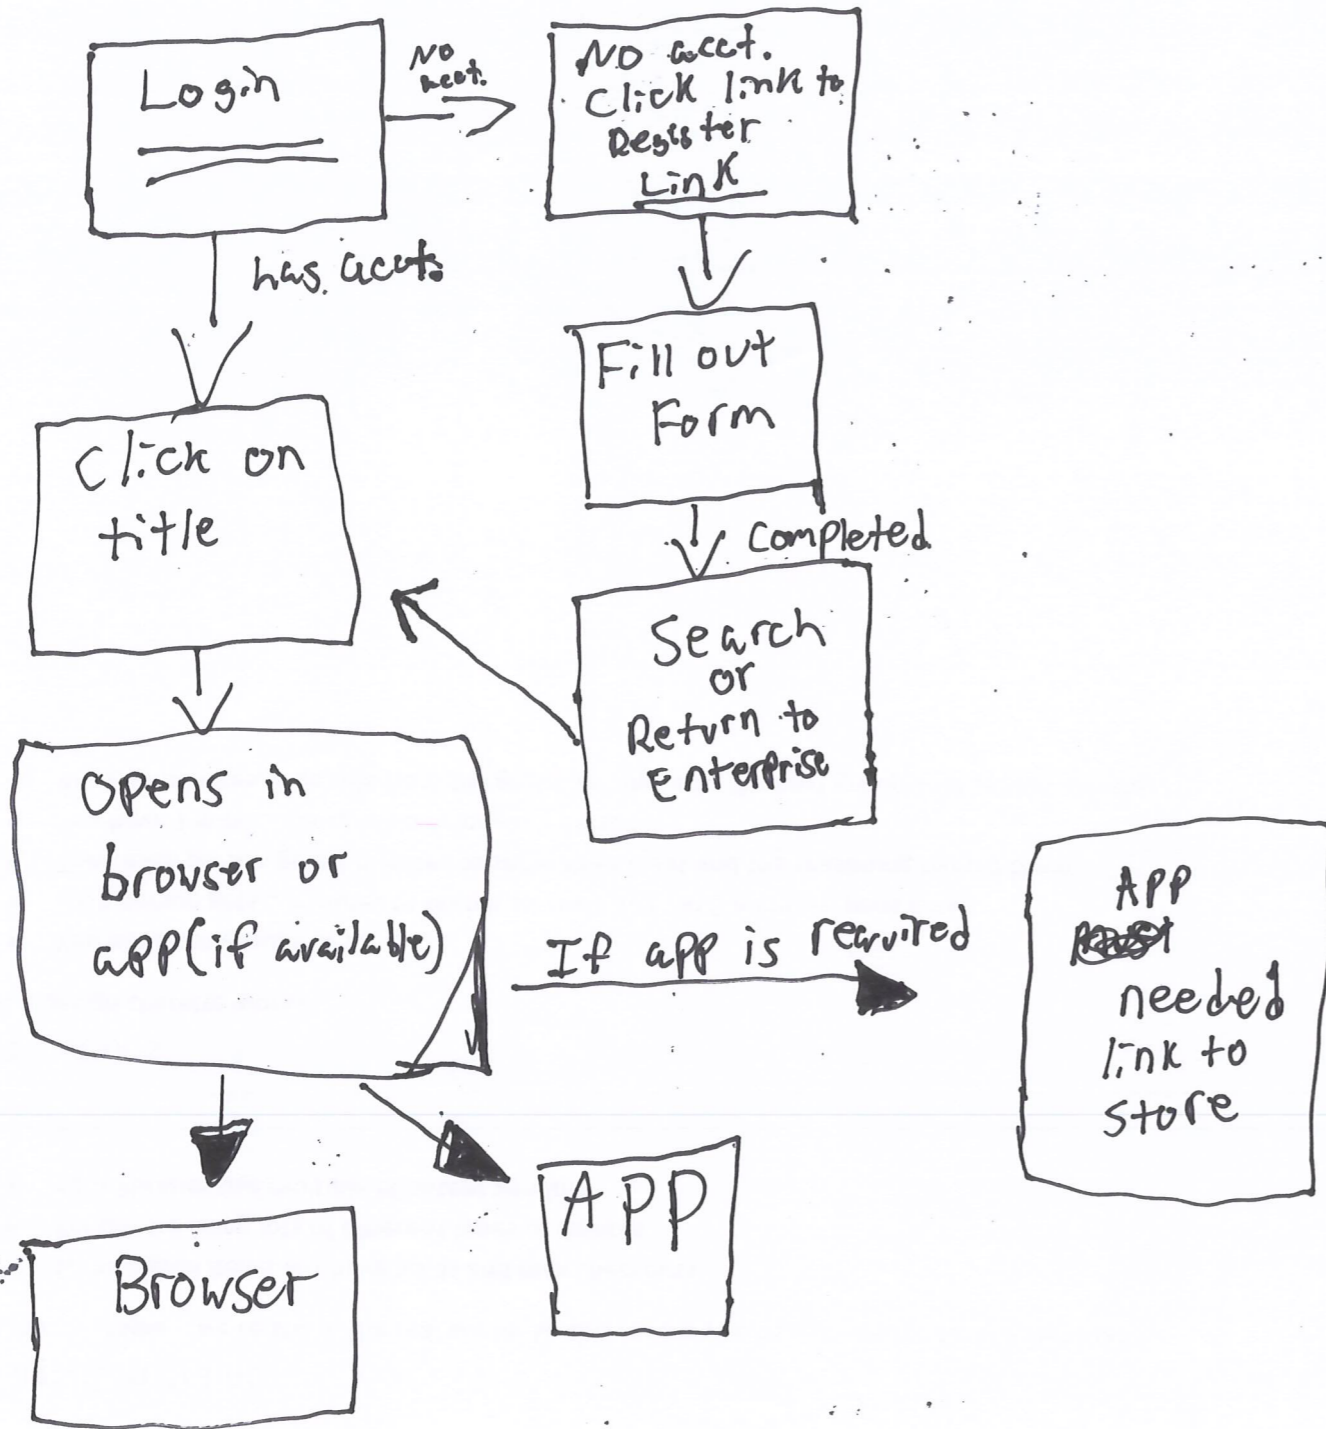 Login
No
acct.
No acct.
Click link to
Register
Link
has acct.
Fill out
Form
Click on
title
Completed
Search
or
Return to
Enterprise
Opens in
browser or
app (if available)
If app is required
App
needed
link to
store
App
Browser